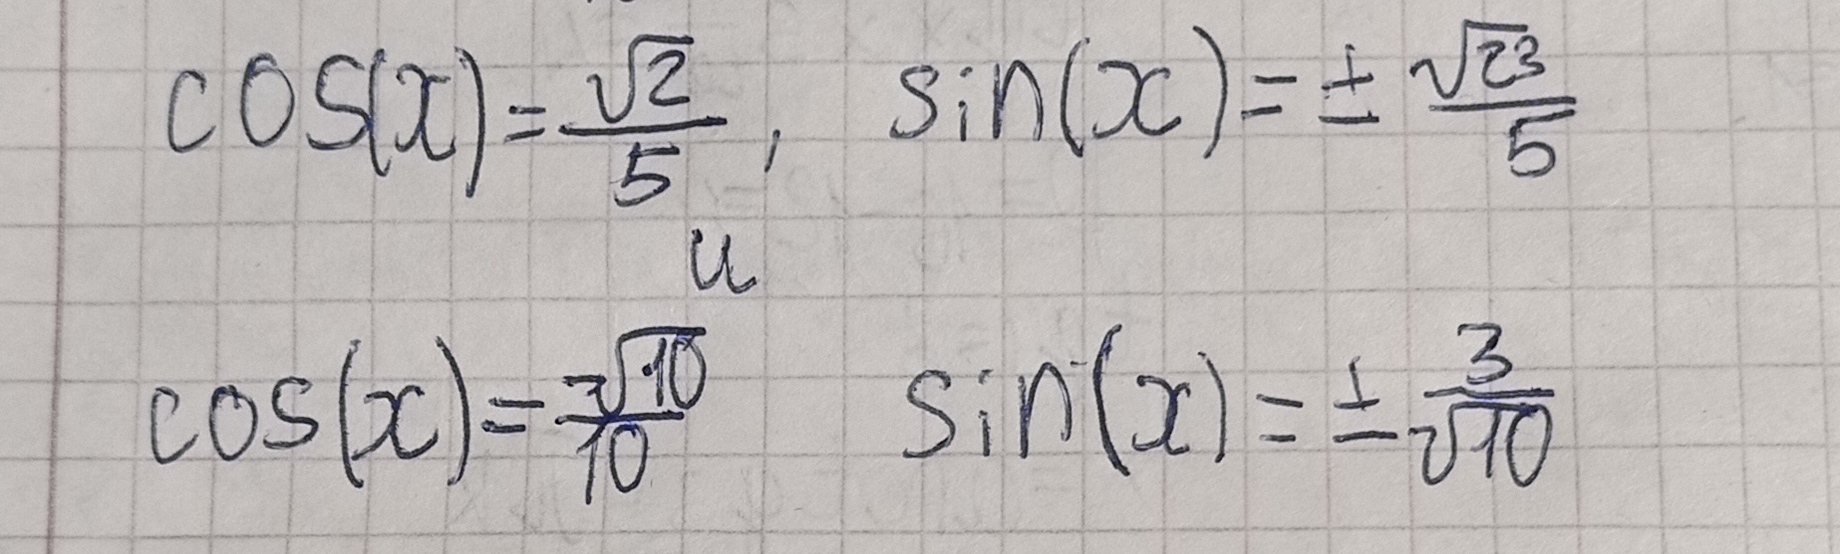 cos(x) = √2/5, sin(x) = ± √23/5
и
cos(x) = √10/10 sin(x) = ± 3/√10